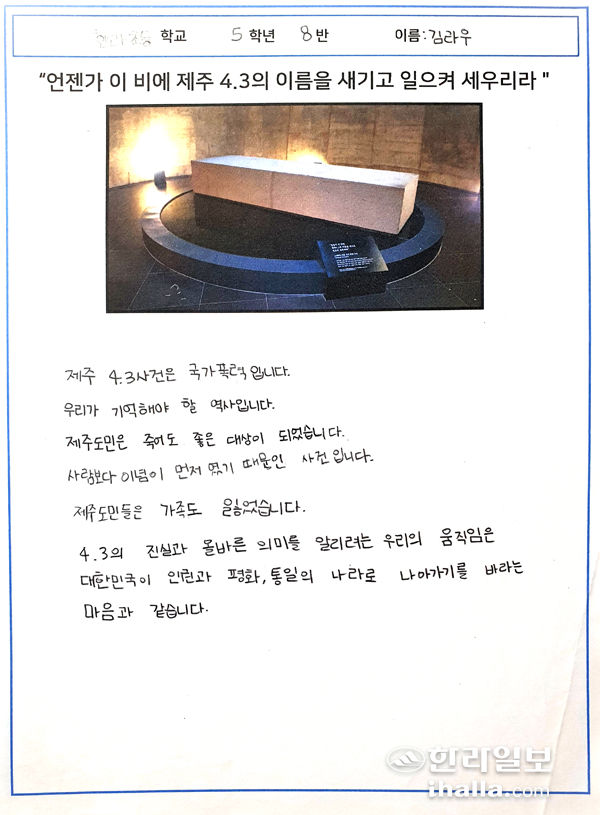 학교 5학년 8반 이름:김라우
“언젠가 이 비에 제주 4.3의 이름을 새기고 일으켜 세우리라 "
제주 4.3사건은 국가폭력입니다.
우리가 기억해야 할 역사입니다.
제주도민은 죽어도 좋은 대상이 되었습니다.
사람보다 이념이 먼저 였기 때문인 사건입니다.
제주도민들은 가족도 잃었습니다.
4.3의 진실과 올바른 의미를 알리려는 우리의 움직임은
대한민국이 인권과 평화, 통일의 나라로 나아가기를 바라는
마음과 같습니다.
한라일보
ihalla.com